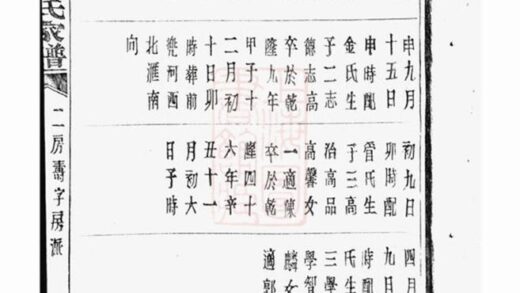 申九月
十五日
申時配
金氏生
子二志
德志高
卒於乾
隆九年
甲子十
二月初
十日卯
時葬前
甕河西
北滙南
向
初九日
卯時配
管氏生
子三高
治高品
高馨女
一適陳
卒於乾
隆四十
六年辛
丑十一
月初六
日子時
四月
九日
時配
氏生
三學
學智
麟女
適郭
氏家譜
二房壽字房派